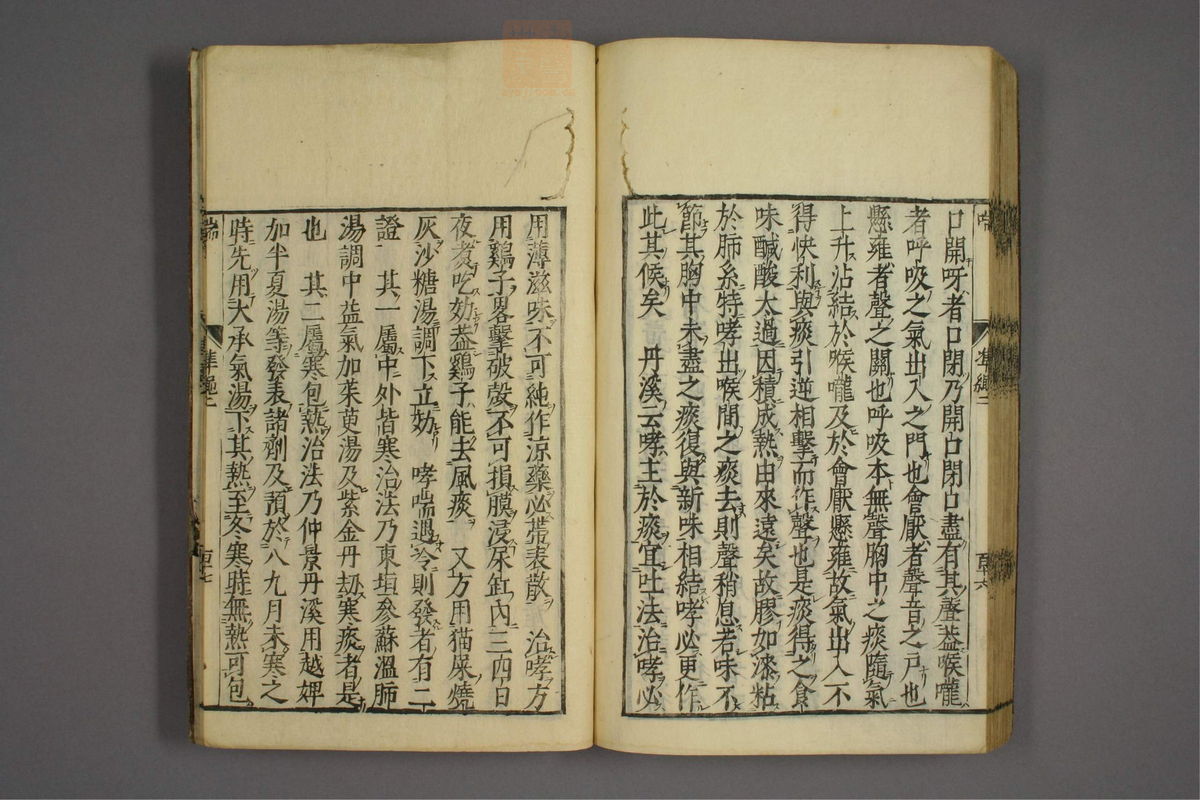 口開呀者口閉乃開口閉口盡有其聲蓋喉嚨
者呼吸之氣出入之門也會厭者聲音之戸也
懸雍者聲之關也呼吸本無聲胸中之痰隨氣
上升沾結於喉嚨及於會厭懸雍故氣出入不
得快利與痰引逆相擊而作聲也是痰得之食
味醎酸太過因積成熱由來遠矣故膠如漆粘
於肺系特哮出喉間之痰去則聲稍息若味不
節其胸中未盡之痰復與新味相結哮必更作
此其候矣　丹溪云哮主於痰宜吐法治哮必
用薄滋味不可純作凉藥必帶表散　治哮方
用鷄子畧擊破殼不可損膜浸尿缸內三四日
夜煮吃効葢鷄子能去風痰　又方用猫屎燒
灰沙糖湯調下立効　哮喘遇冷則發者有二
證　其一屬中外皆寒治法乃東垣參蘇溫肺
湯調中益氣加茱萸湯及紫金丹劫寒痰者是
也　其二屬寒包熱治法乃仲景丹溪用越婢
加半夏湯等發表諸劑及預於八九月未寒之
時先用大承氣湯下其熱至冬寒時無熱可包
喘
準繩二
百七